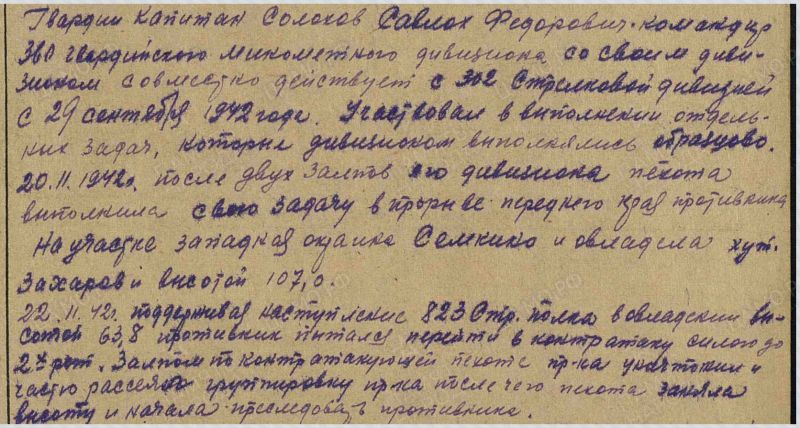 Гвардии Капитан Солохов Савлох Федорович. командир
380 гвардейского минометного дивизиона со своим диви-
зионом совместно действует с 302 Стрелковой дивизией
с 29 сентября 1942 года. Участвовал в выполнении отдель-
ных задач, которые дивизионом выполнялись образцово.
20.11.1942г. после двух залпов его дивизиона пехота
выполнила свою задачу в прорыве переднего края противника
На участке западная окраина Семкино и овладела хут.
Захаров и высотой 107,0.
22.11.42г. поддерживая наступление 823 Стр. полка в овладении вы-
сотой 63,8 противник пытался перейти в контратаку силою до
2х рот. Залпом по контратакующей пехоте пр-ка уничтожил и
частью рассеял группировку пр-ка после чего пехота заняла
высоту и начала преследовать противника.